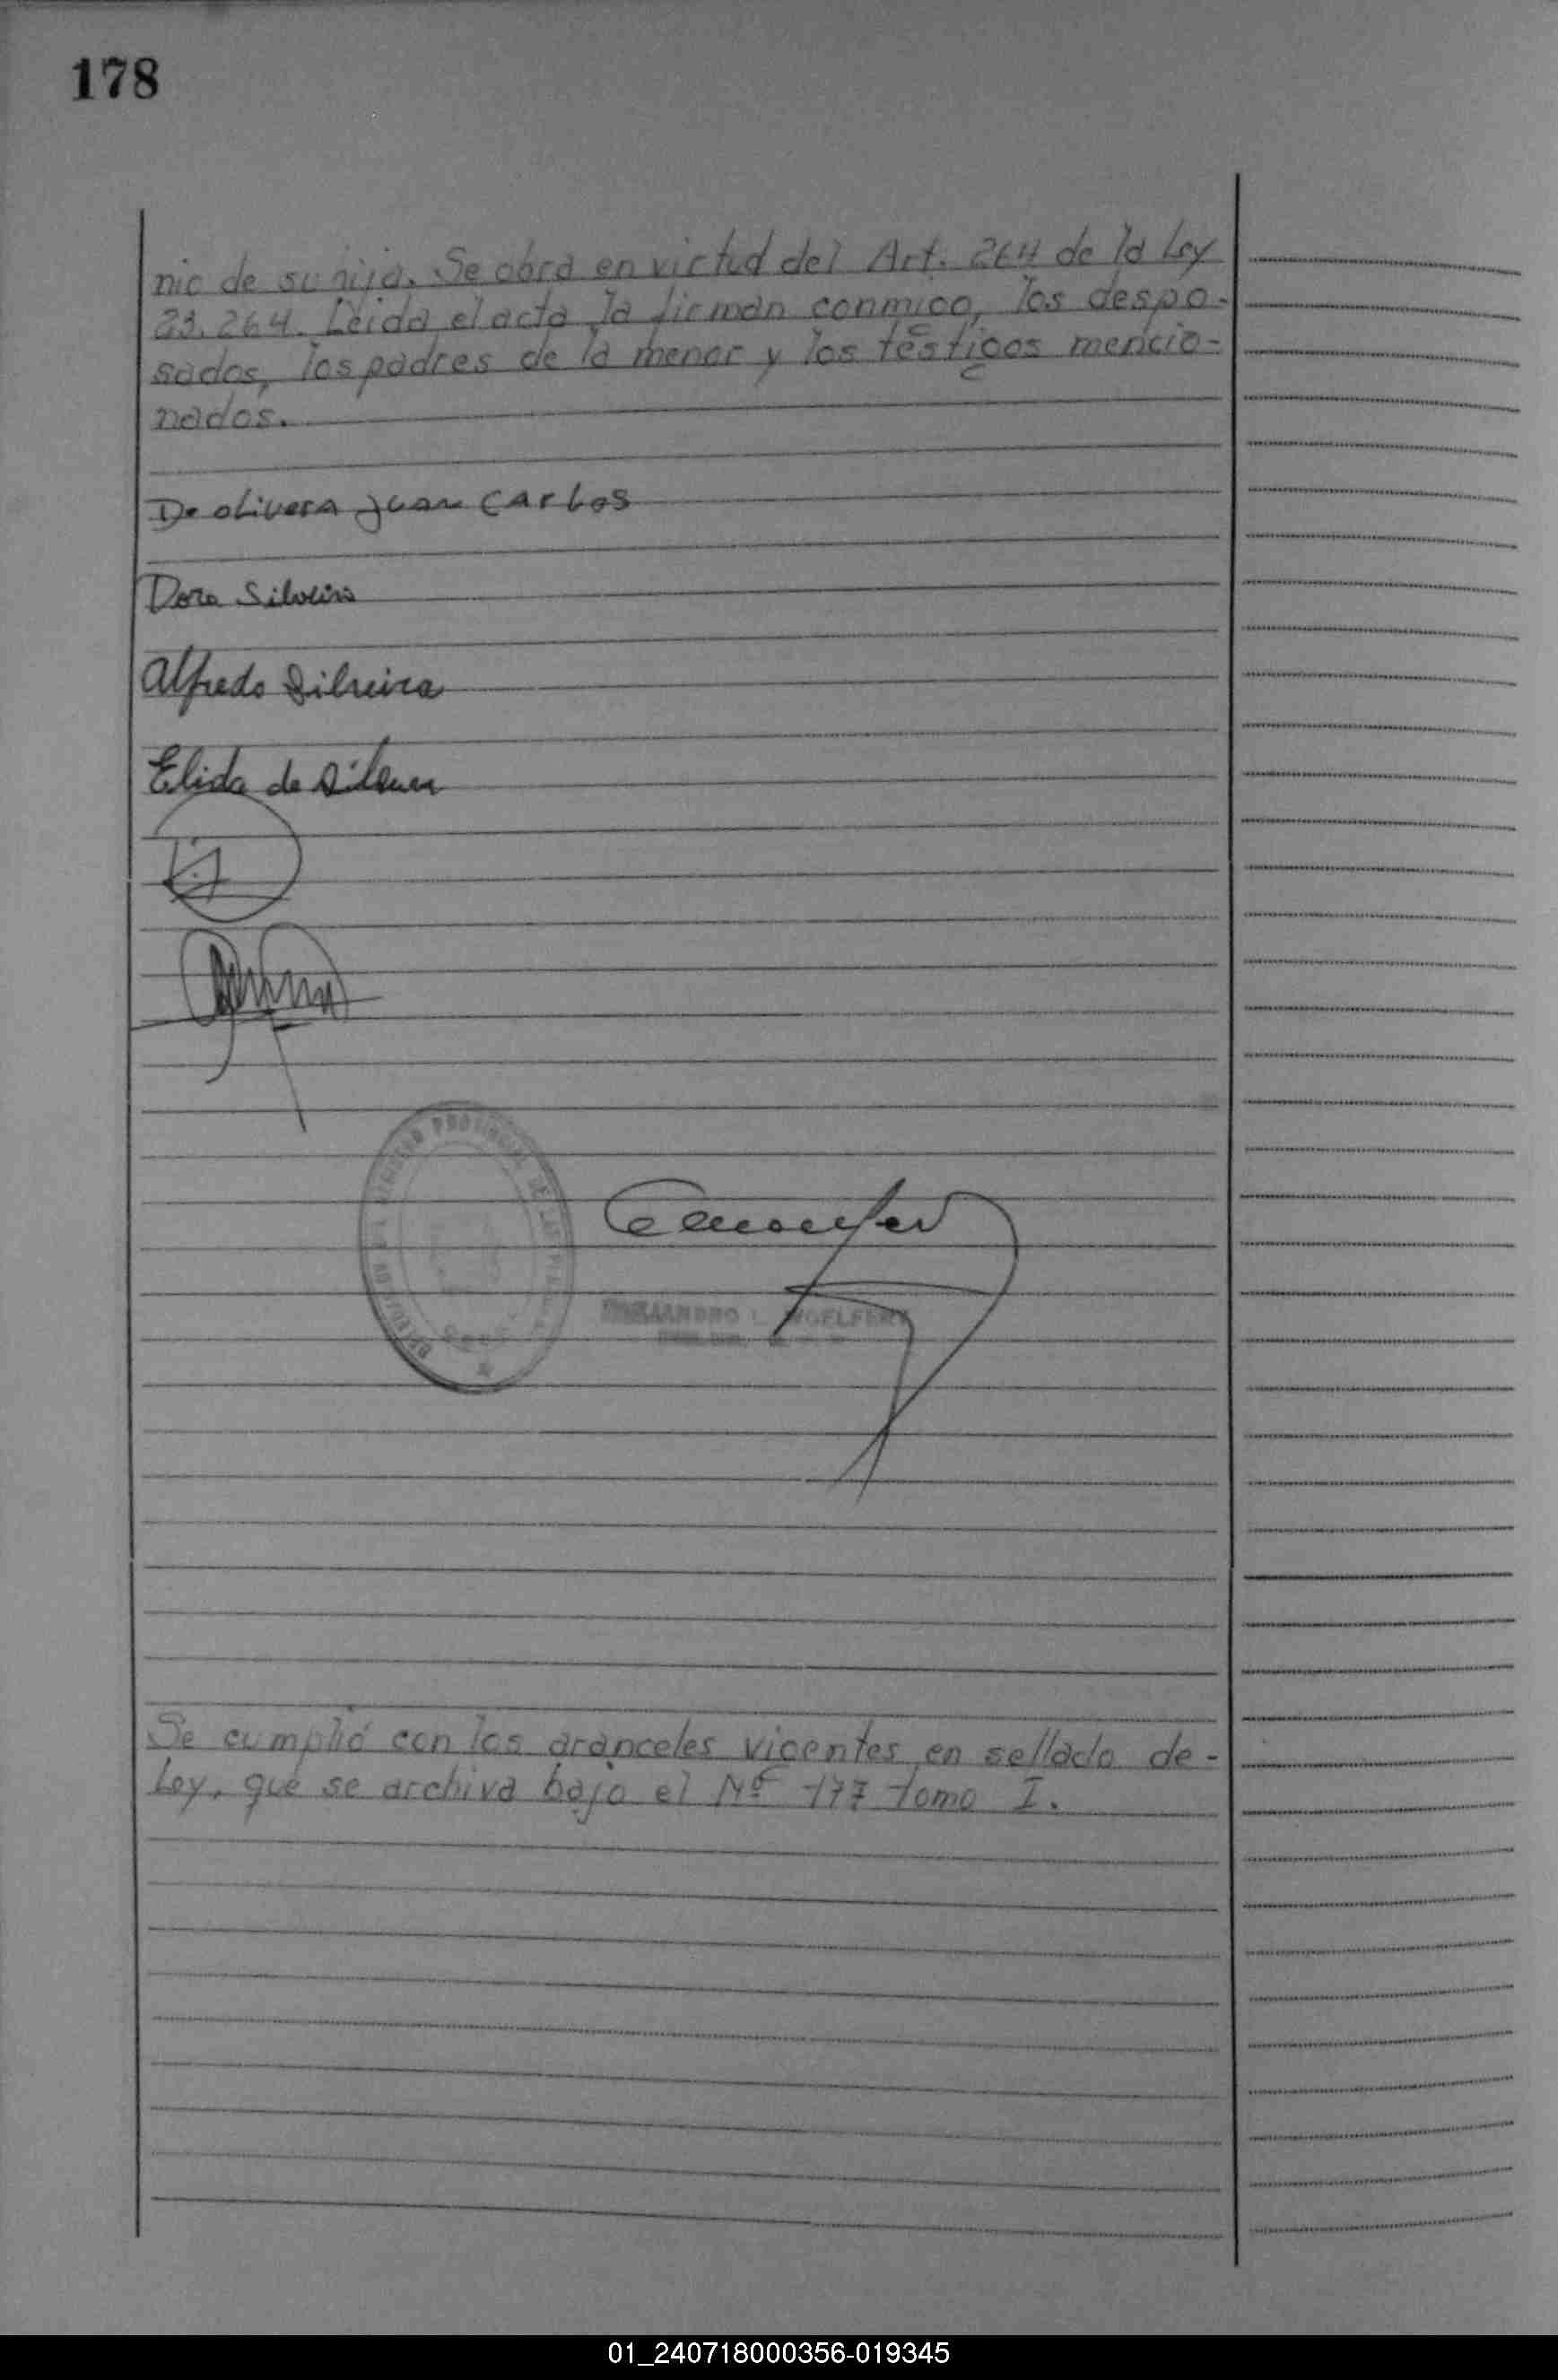 178
nio de su hija. Se obra en virtud del Art. 264 de la Ley
23.264. Leida el acta la firman conmigo, los despo-
sados, los padres de la menor y los testigos mencio-
nados.
De olivera juan CARLOS
Dora Silveira
Alfredo Silveira
Elida de Silveira
REGISTRO PROVINCIAL DE LAS PERSONAS
Se cumplió con los aranceles vigentes en sellado de-
Ley, que se archiva bajo el Nº 177 tomo I.
01_240718000356-019345